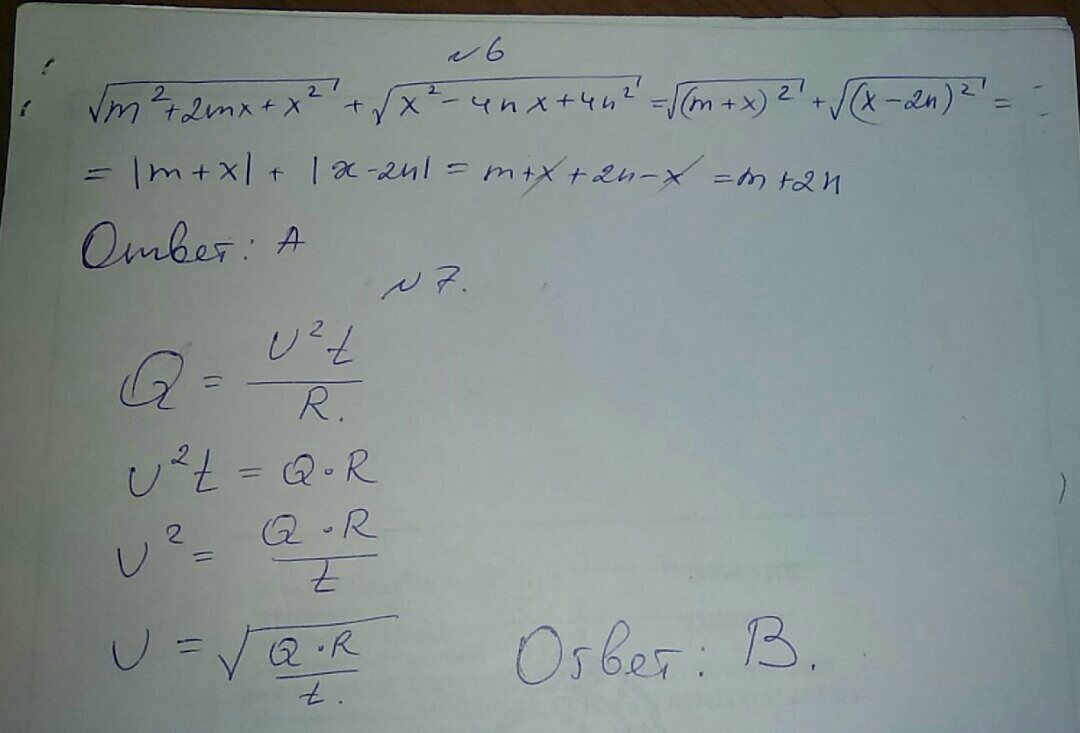 №6
√(m²+2mx+x²) + √(x²-4nx+4n²) = √(m+x)² + √(x-2n)² =
= |m+x| + |x-2n| = m+x+2n-x = m+2n
Ответ: А
№7.
Q = U²t / R.
U²t = Q·R
U² = Q·R / t
U = √(Q·R / t).
Ответ: В.